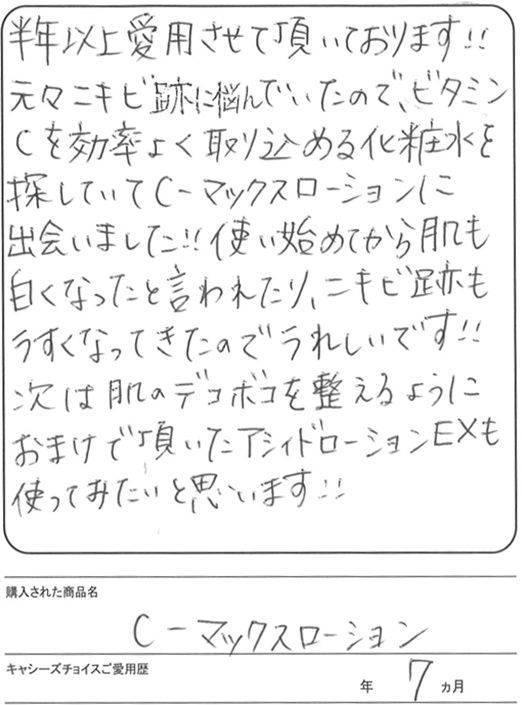 半年以上愛用させて頂いております!!
元々ニキビ跡に悩んでいたので、ビタミン
Cを効率よく取り込める化粧水を
探していてC-マックスローションに
出会いました!!使い始めてから肌も
白くなったと言われたり、ニキビ跡も
うすくなってきたのでうれしいです!!
次は肌のデコボコを整えるように
おまけで頂いたアシィドローションEXも
使ってみたいと思います!!
購入された商品名
C-マックスローション
キャシーズチョイスご愛用歴
年 7 ヵ月